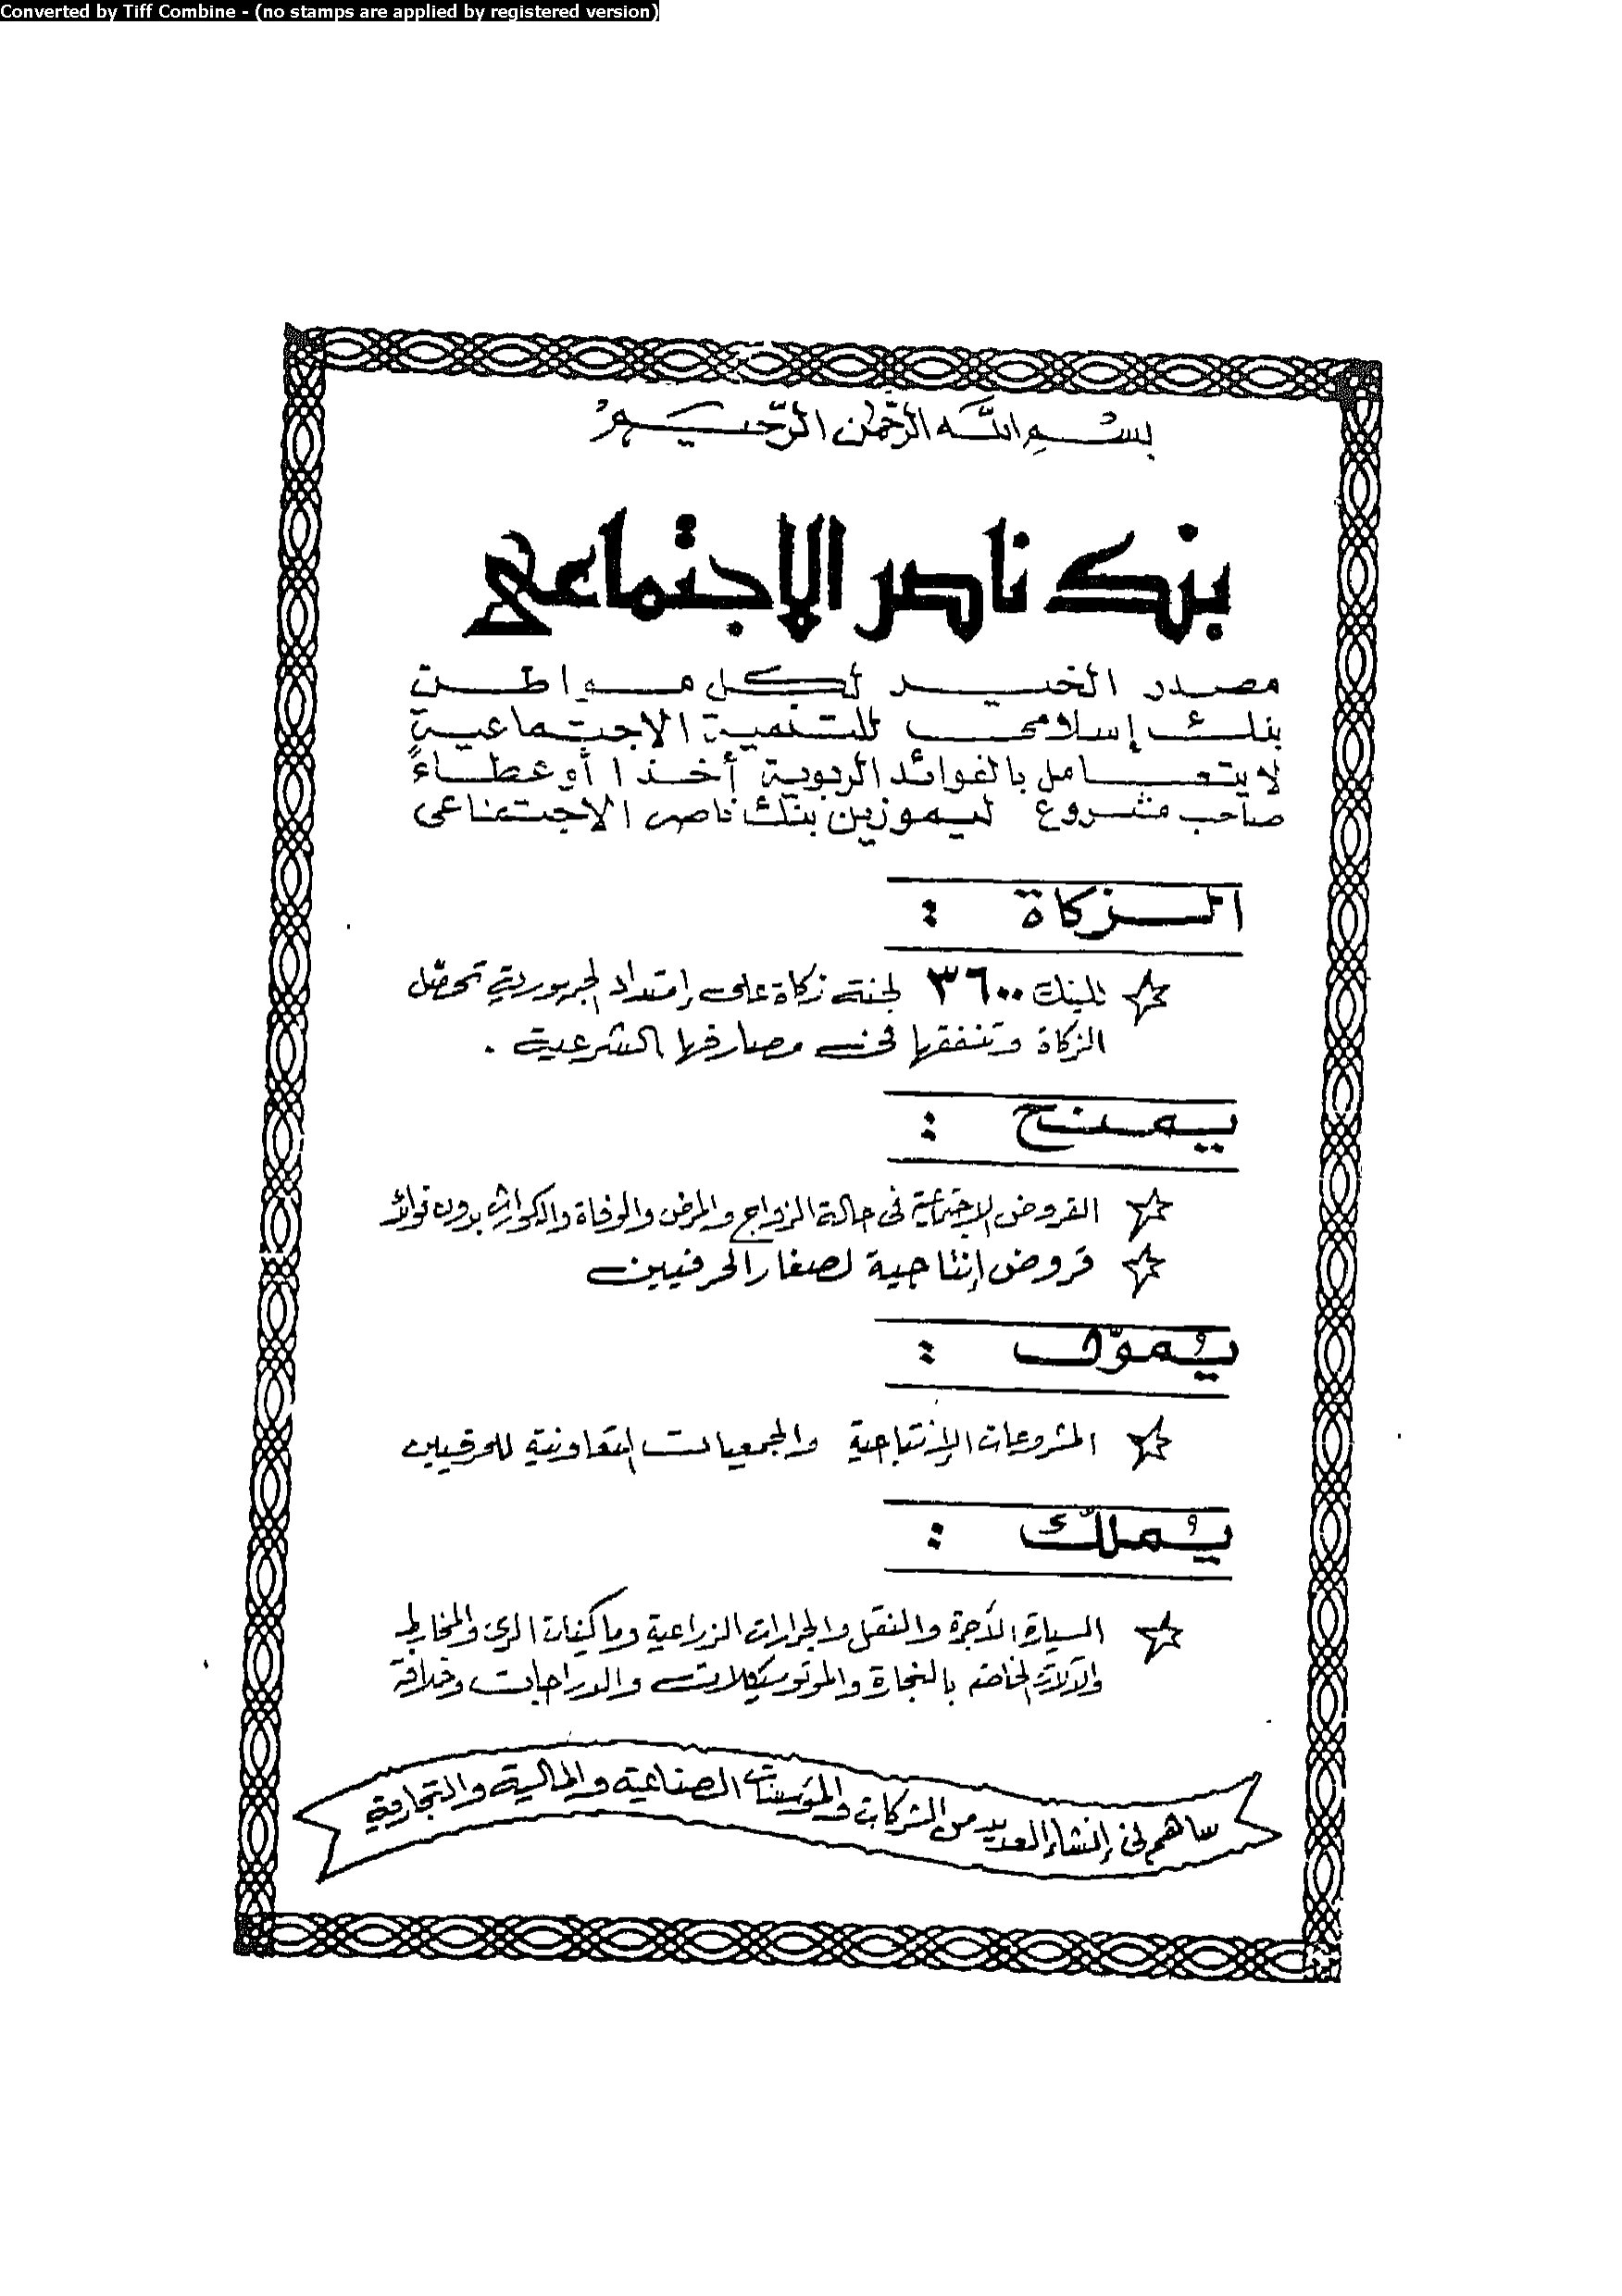 Converted by Tiff Combine - (no stamps are applied by registered version)
بسم الله الرحمن الرحيم
بنك ناصر الاجتماعى
مصدر الخير لكل مواطن
بنك إسلامى للتنمية الاجتماعية
لا يتعامل بالفوائد الربوية أخذا أو عطاءً
صاحب مشروع ليموزين بنك ناصر الاجتماعى
الزكاة :
للبنك ٣٦٠٠ لجنة زكاة على إمتداد الجمهورية تحصّل
الزكاة وتنفقها فى مصارفها الشرعية .
يمنح :
القروض الإجتماعية فى حالة الزواج والمرض والوفاة والكوارث بدون فوائد
قروض إنتاجية لصغار الحرفيين
يُموّل :
المشروعات الإنتاجية والجمعيات التعاونية للحرفيين
يُملّك :
السيارة الأجرة والنقل والجرارات الزراعية وماكينات الرى والمخارط
والآلات الخاصة بالنجارة والموتوسيكلات والدراجات وخلافه
ساهم فى إنشاء العديد من الشركات والمؤسسات الصناعية والمالية والتجارية